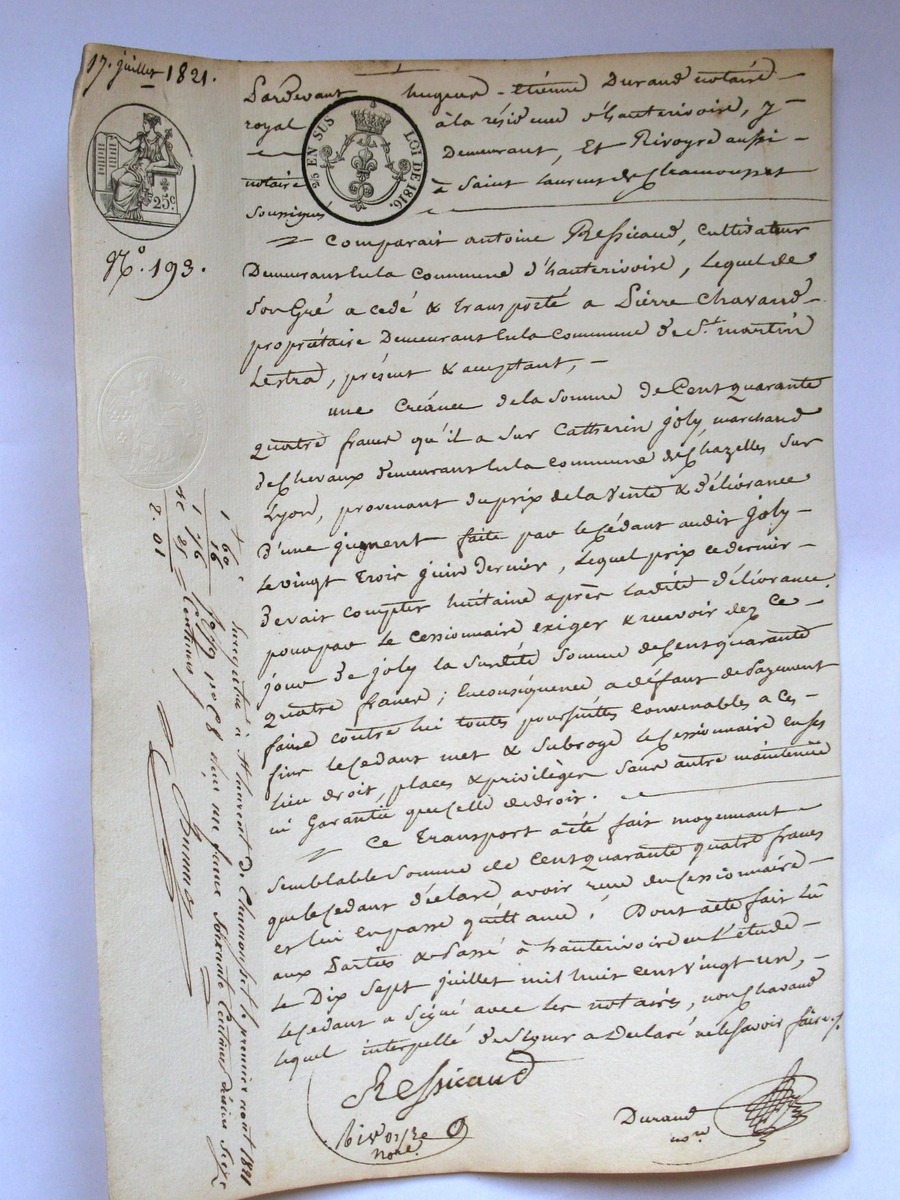 17. juillet 1821.
25c
No. 193.
2/5 EN SUS
LOI DE 1816.
Pardevant hugues - Etienne Durand notaire
royal à la résidence d'hauterivoire, y
Demeurant, Et Rivoyre aussi
notaire à Saint Laurent de Chamousset
Soussignés
Comparait antoine Ressicaud, cultivateur
Demeurant En la Commune d'hauterivoire, Lequel de
Son Gré a cedé & transporté a Pierre Chavand
propriétaire Demeurant En la Commune de St. martin
Lestra, présent & acceptant,
une Créance de la Somme de Cent quarante
quatre francs qu'il a Sur Catherin joly, marchand
de Chevaux demeurant En la commune de Chazelles Sur
Lyon, provenant du prix de la Vente & délivrance
d'une jument faite par le Cédant audit joly
Le vingt Trois juin dernier, Lequel prix ce dernier
devait compter huitaine après ladite délivrance.
pour par le cessionnaire exiger & recevoir dez ce
jour de joly la Susdite Somme de Cent quarante
quatre francs; En conséquence a défaut de Payement
faire contre lui toutes poursuites convenables a ces
fins le Cédant met & Subroge le Cessionnaire en Ses
lieu droit, places & privilèges Sans autre maintenue
ni Garantie que Celle de droit.
Ce Transport a été fait moyennant
Semblable Somme de Cent quarante quatre francs
que le Cedant déclare avoir reçue du Cessionnaire
et lui en passe quittance. Dont acte fait Lu
aux Parties & Passé à hauterivoire en L'étude
Le Dix Sept juillet mil huit cent vingt un,
le Cedant a Signé avec les notaires, non Chavand
lequel interpellé de Signer a Declaré ne le Savoir faire
Ressicaud
Rivoyre
nore.
Durand
nore
Enregistré à St Laurent de Chamousset le premier aout 1821
reçu un franc Soixante Centimes décime Seize
Centimes
1 60c
16
1 76
25
2. 01